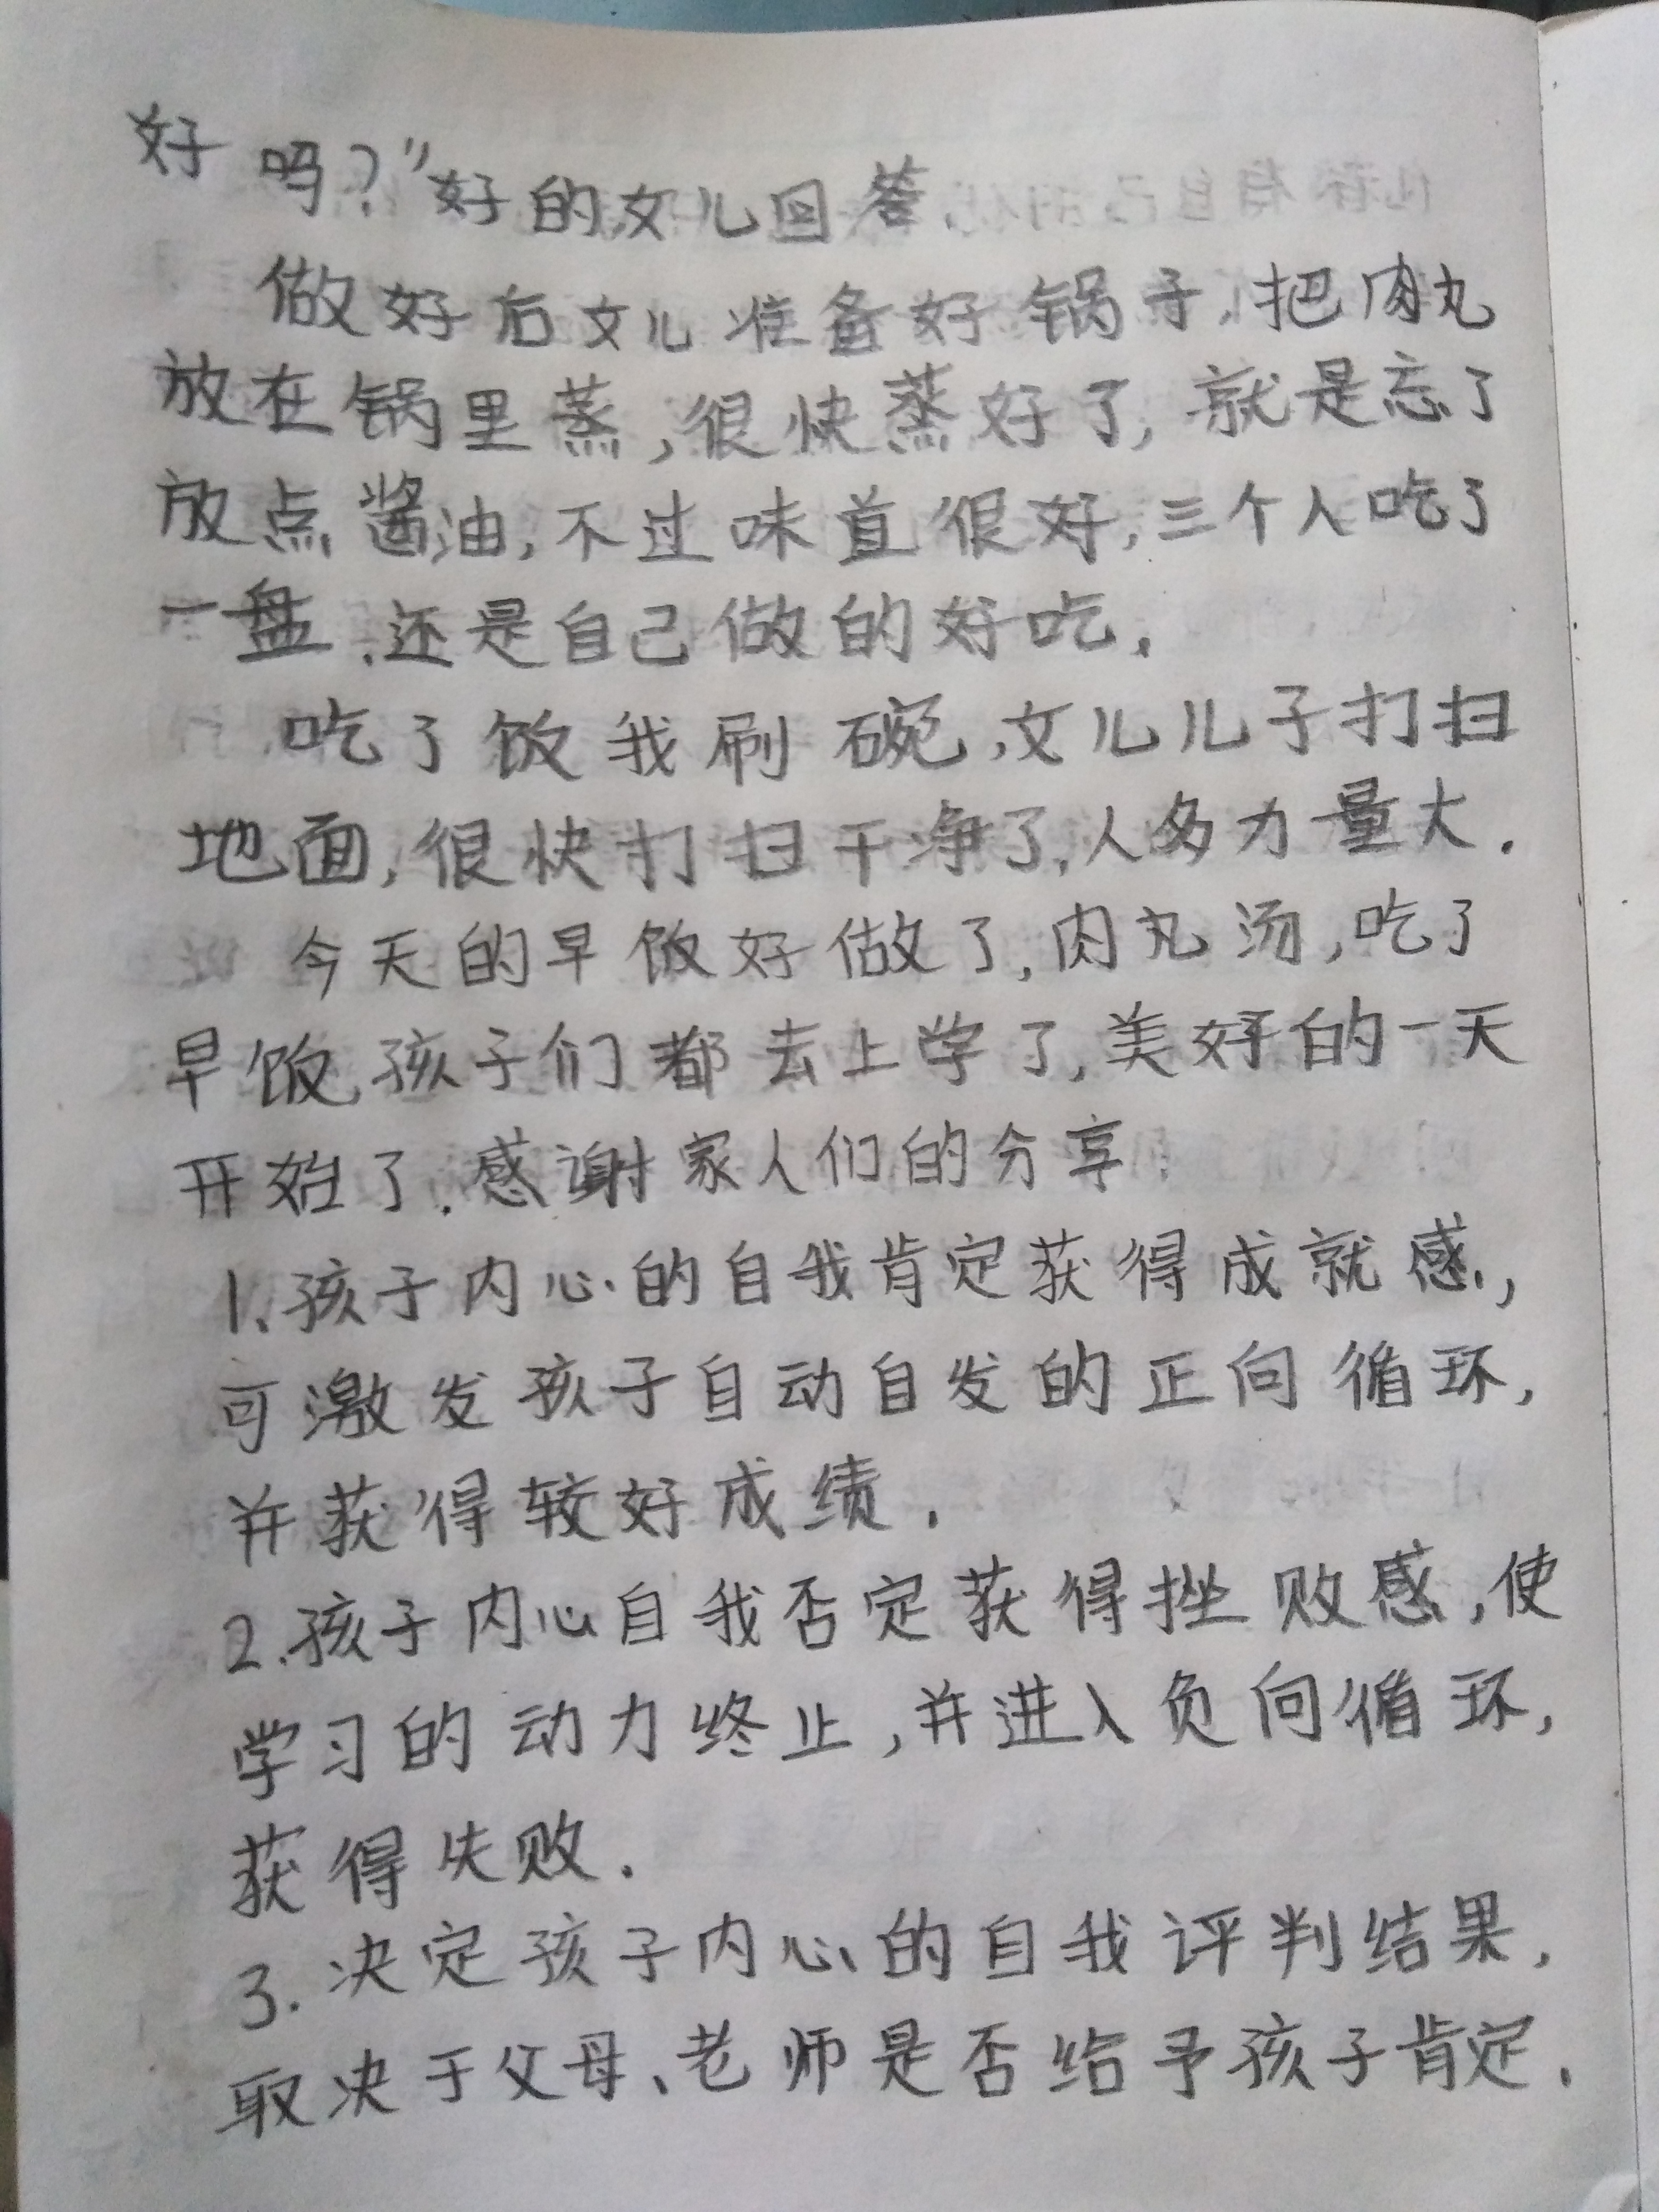 好吗？”好的女儿回答
做好后女儿准备好锅子，把肉丸
放在锅里蒸，很快蒸好了，就是忘了
放点酱油，不过味道很好，三个人吃了
一盘，还是自己做的好吃.
吃了饭我刷碗，女儿儿子打扫
地面，很快打扫干净了，人多力量大.
今天的早饭好做了，肉丸汤，吃了
早饭，孩子们都去上学了，美好的一天
开始了.感谢家人们的分享
1、孩子内心的自我肯定获得成就感，
可激发孩子自动自发的正向循环，
并获得较好成绩.
2.孩子内心自我否定获得挫败感，使
学习的动力终止，并进入负向循环，
获得失败.
3.决定孩子内心的自我评判结果，
取决于父母、老师是否给予孩子肯定.